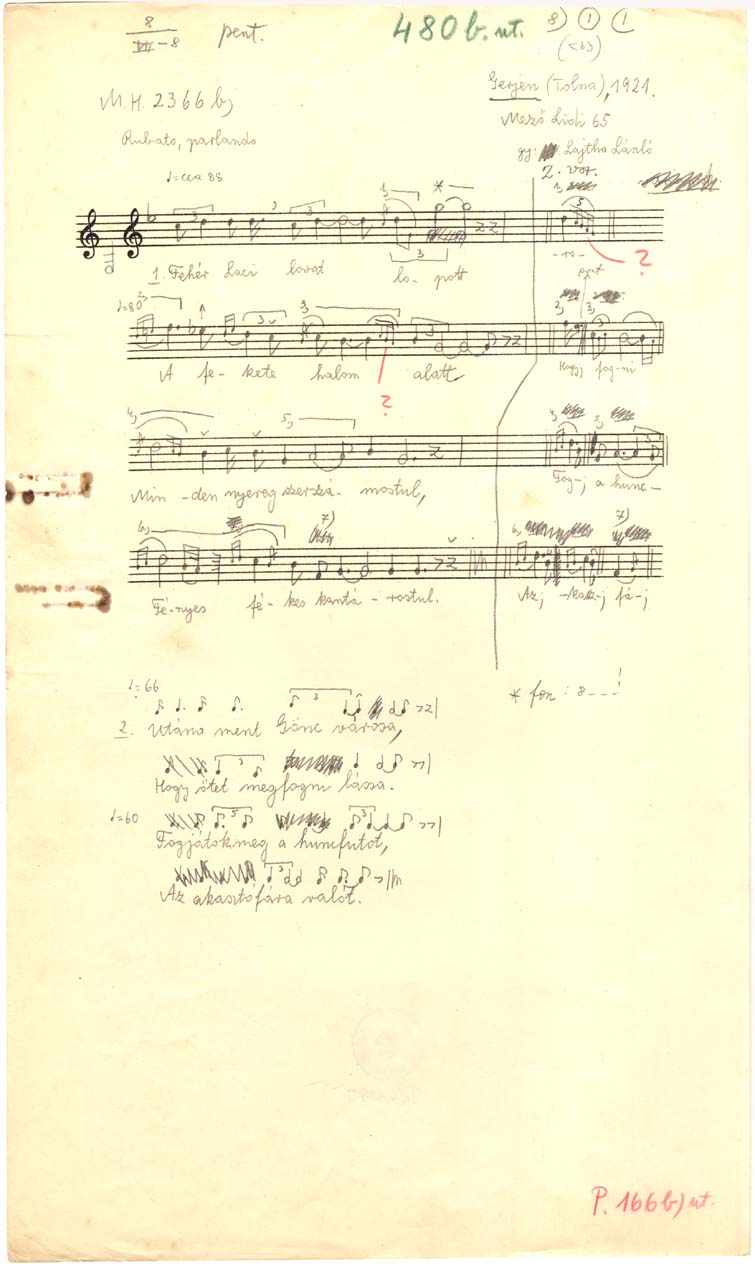 8 / VII-8 pent. 480 b. ut. 8) 1 1
(<b3)
M.H. 2366 b)
Gerjen (Tolna), 1921.
Mező Lidi 65
gy: Lajtha László
Rubato, parlando
2. var.
♩=cca 88
1. Fehér Laci lovat lo- pott
-ro- ?
♩=80
A fe- kete halom alatt
Hogy fog-ni
?
Min -den nyereg szerszá- mostul,
Fog-j a hunc-
Fé-nyes fé- kes kantá - rostul.
Az j -kasz-j fá-j
♩=66
* fon : 8---!
2. Utána ment Gönc városa,
Hogy őtet megfogni lássa.
♩=60
Fogjátok meg a huncfutot,
Az akasztófára valót.
P. 166 b) ut.